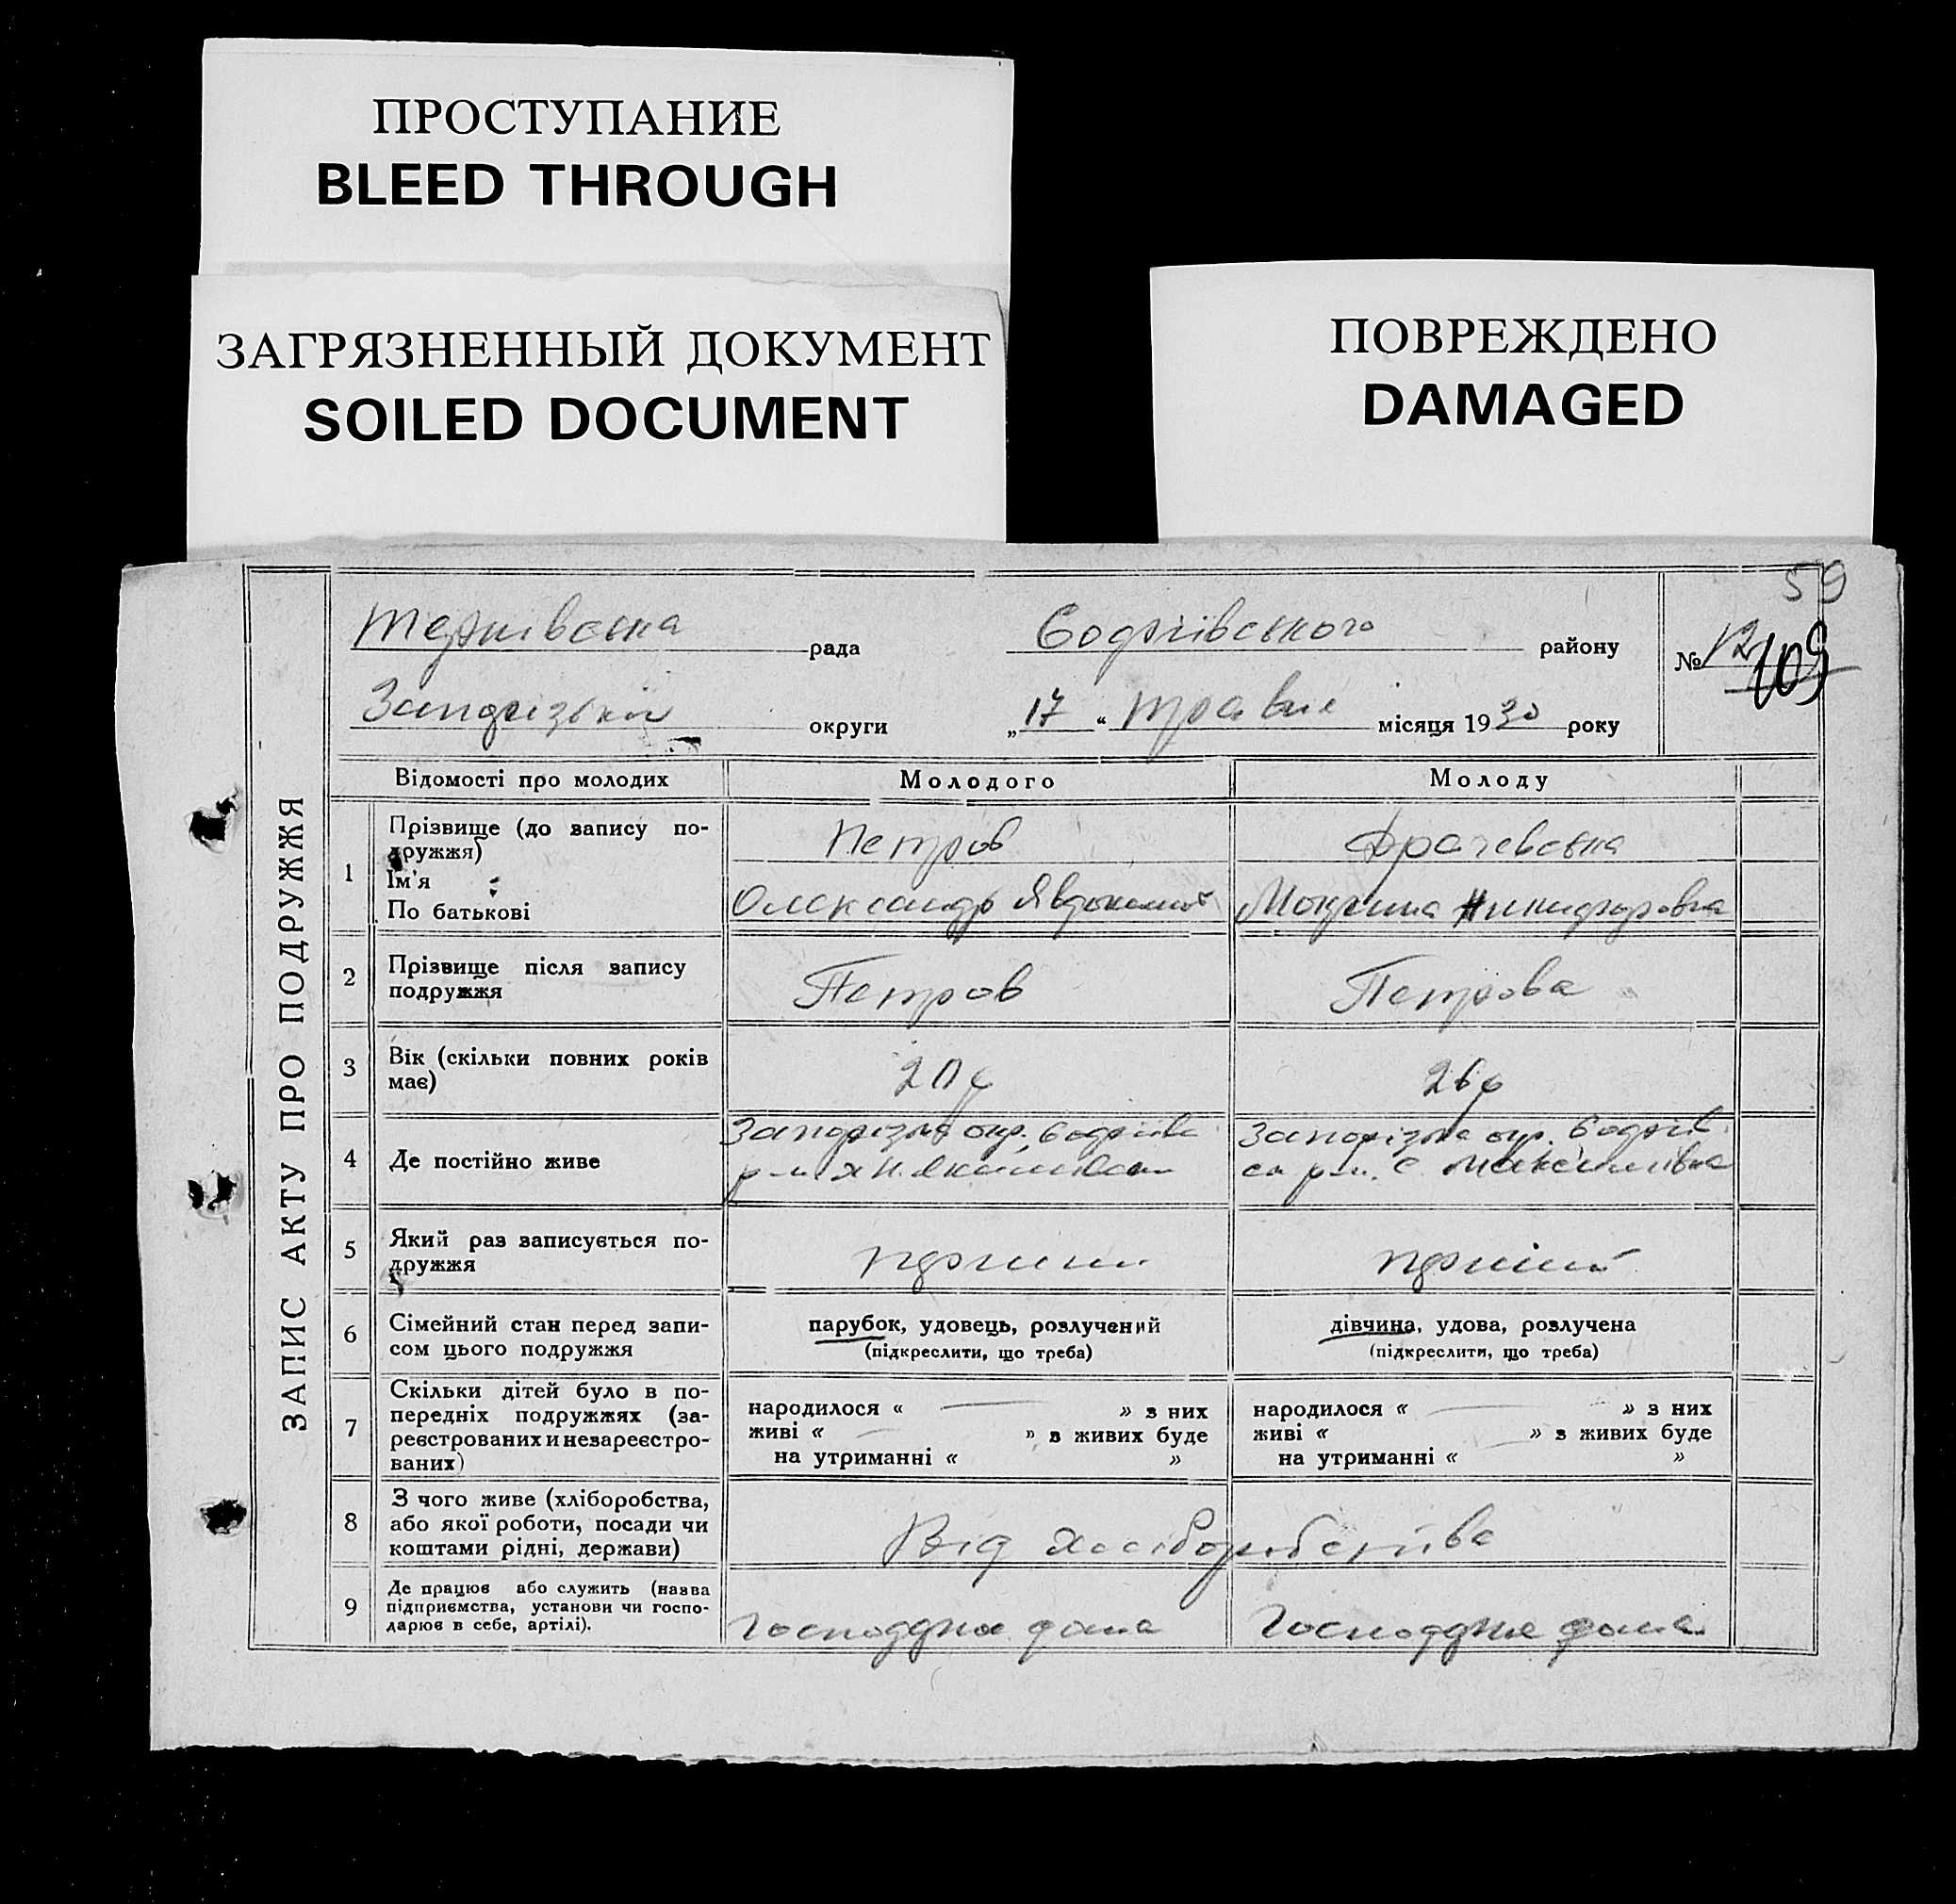 ПРОСТУПАНИЕ
BLEED THROUGH
ЗАГРЯЗНЕННЫЙ ДОКУМЕНТ
SOILED DOCUMENT
ПОВРЕЖДЕНО
DAMAGED
59
ЗАПИС АКТУ ПРО ПОДРУЖЖЯ
Тернівська рада Софіївського району № 12 109
Запорізької округи „17“ травня місяця 1930 року
Відомості про молодих Молодого Молоду
1 Прізвище (до запису по-
дружжя) Петров
Ім'я
По батькові Олександр Мокрина Никифоровна
2 Прізвище після запису
подружжя Петров Петрова
3 Вік (скільки повних років
має) 20 26
4 Де постійно живе Запорізька окр. Софіївс Запорізька окр. Софіїв
с. Максимівка
5 Який раз записується по-
дружжя перший перший
6 Сімейний стан перед запи-
сом цього подружжя парубок, удовець, розлучений
(підкреслити, що треба) дівчина, удова, розлучена
(підкреслити, що треба)
7 Скільки дітей було в по-
передніх подружжях (за-
реєстрованих и незареєстро-
ваних) народилося « — » з них
живі « — » з живих буде
на утриманні « »
народилося « — » з них
живі « » з живих буде
на утриманні « — »
8 З чого живе (хліборобства,
або якої роботи, посади чи
коштами рідні, держави) Від хліборобства
9 Де працює або служить (назва
підприємства, установи чи госпо-
дарює в себе, артілі). дома дома